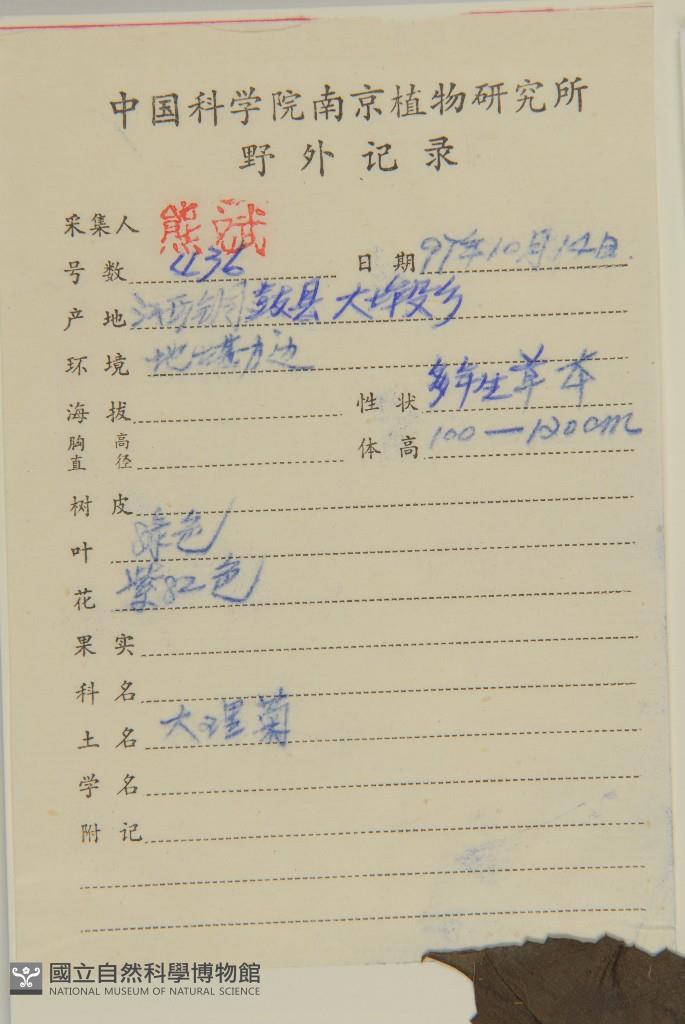 中国科学院南京植物研究所
野外记录
采集人 熊斌
号数 436 日期 97年10月14日
产地 江西铜鼓县大塅段乡
环境 地堪方边
海拔 性状 多年生草本
胸高直径 体高 100—120cm
树皮
叶 绿色
花 紫红色
果实
科名
土名 大理菊
学名
附记
國立自然科學博物館
NATIONAL MUSEUM OF NATURAL SCIENCE